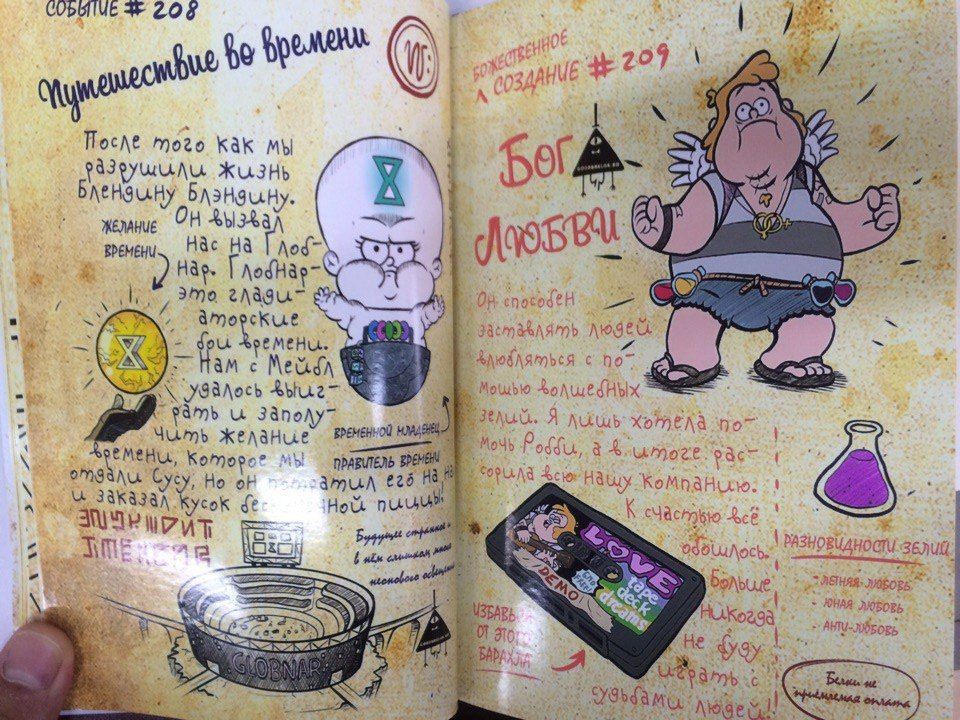 СОБЫТИЕ # 208
Путешествие во времени
После того как мы
разрушили жизнь
Блендину Блэндину.
Он вызвал
нас на Глоб-
нар. Глобнар-
это глади-
аторские
бои времени.
Нам с Мейбл
удалось выиг-
рать и заполу-
чить желание
времени, которое мы
отдали Сусу, но он потратил его на
и заказал кусок пиццы!
ЖЕЛАНИЕ
ВРЕМЕНИ
ВРЕМЕННОЙ МЛАДЕНЕЦ
ПРАВИТЕЛЬ ВРЕМЕНИ
Будущее странное -
в нём слишком много
неонового
GLOBNAR
БОЖЕСТВЕННОЕ
СОЗДАНИЕ # 209
БОГ
ЛЮБВИ
Он способен
заставлять людей
влюбляться с по-
мощью волшебных
зелий. Я лишь хотела по-
мочь Робби, а в итоге рас-
сорила всю нашу компанию.
К счастью всё
обошлось.
Больше
никогда
не буду
играть с
судьбами людей!!
LOVE
tape
deck
dreams
DEMO
ИЗБАВЬСЯ
ОТ ЭТОГО
БАРАХЛА
РАЗНОВИДНОСТИ ЗЕЛИЙ
- ЛЕТНЯЯ ЛЮБОВЬ
- ЮНАЯ ЛЮБОВЬ
- АНТИ-ЛЮБОВЬ
Белки не
приемлемая оплата